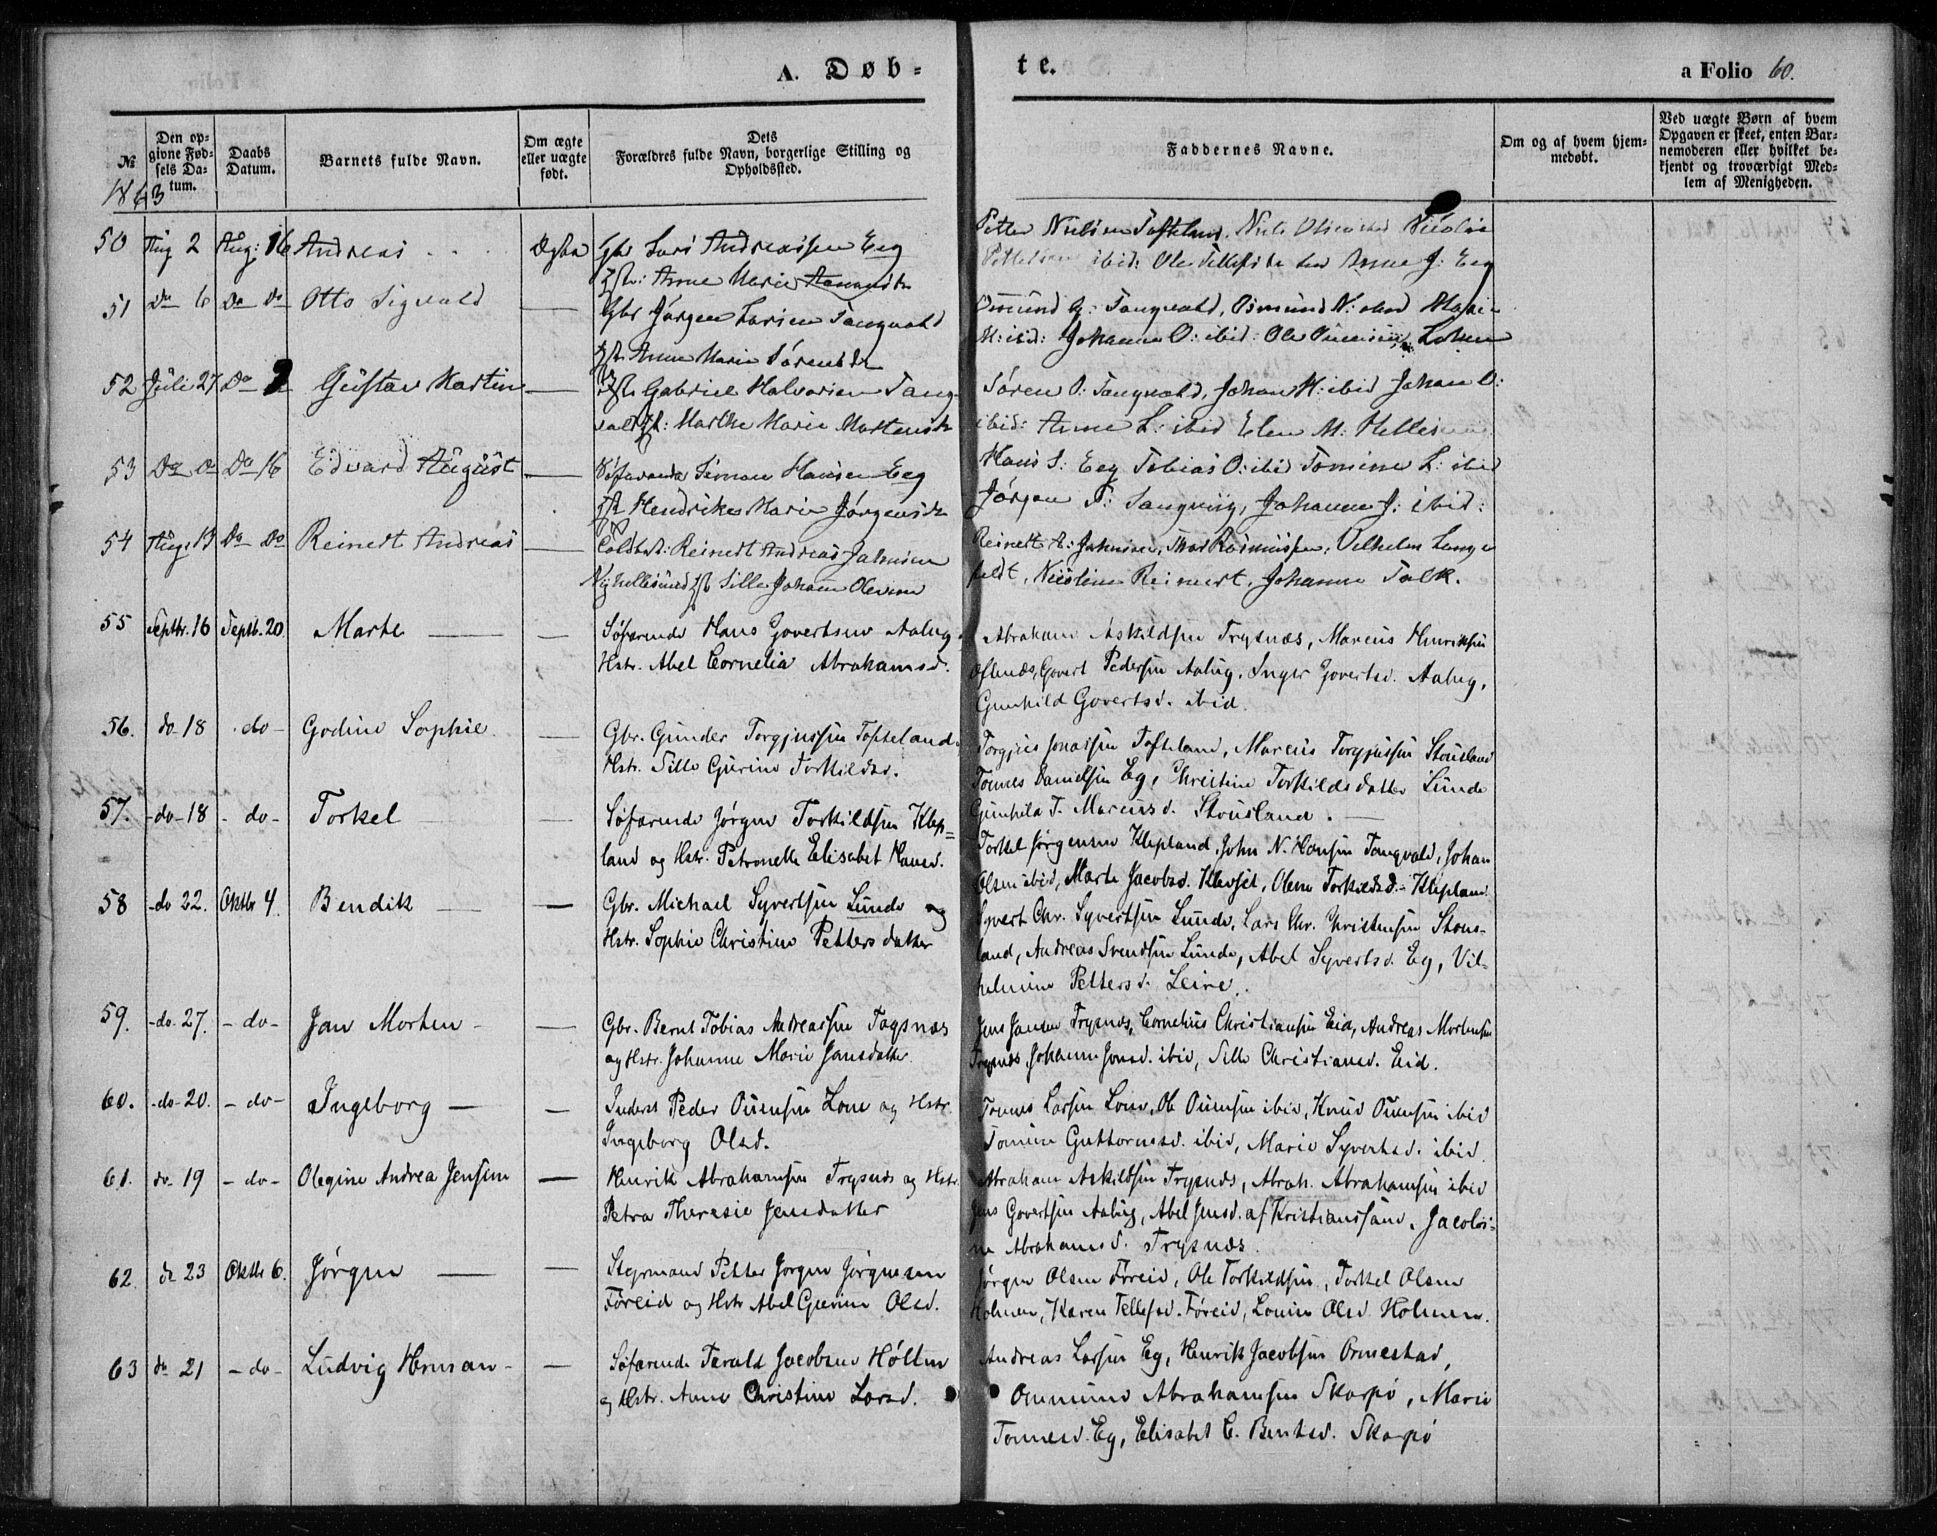 A. Døb-
te.
a Folio 60.
№
Den op-
givne Fød-
sels Da-
tum.
Daabs
Datum.
Barnets fulde Navn.
Om ægte
eller uægte
født.
Dets
Forældres fulde Navn, borgerlige Stilling og
Opholdssted.
Faddernes Navne.
Om og af hvem hjem-
medøbt.
Ved uægte Børn af hvem
Opgaven er skeet, enten Bar-
nemoderen eller hvilket be-
kjendt og troværdigt Med-
lem af Menigheden.
1863
50 Aug 2 Aug: 16 Andreas Ægte Gbr Lars Andreassen Eeg
Hstr: Anne Marie
Petter Nielsen Tofteland, Niels Olsen
ibid: Ole Anne J: Eeg
51 Do 6 Do Do Otto Sigvald — Gbr Jørgen Larsen Tangvald
Hstr Anne Marie Sørensdtr
Osmund G: Tangvald, Osmund N: ibid
M: ibid: Johanne O: ibid: Ole
52 Juli 27 Do Gustav Martin — Gabriel Halvorsen Tang-
vald Hst: Marthe Marie Mortensdtr
Søren O: Tangvald, Johan H: ibid Johan O:
ibid: Anne L: ibid Elen M:
53 Do Do 16 Edvard August — Søfarende Simon Hansen Eeg
Hst Hendrikke Marie Jørgensdtr
Hans S: Eeg Tobias O: ibid Tomine L: ibid
Jørgen P: Johanne J: ibid:
54 Aug: 13 Do Do Reinert Andreas — Reinert Andreas
Nyhellesund Hst Sille Johanne Olevine
Reinert A: Rasmussen, Vilhelm Lange
feldt, Nicoline Reinert, Johanne Falk.
55 Septbr. 16 Septb. 20. Marte — Søfarende Hans Govertsen Aalug
Hstr. Abel Cornelia Abrahamsd.
Abraham Askildsen Trysnæs, Marcus Henriksen
Govert Pedersen Aalug, Inger Govertsd. Aalug,
Gunhild Govertsd. ibid.
56. do 18 do - Godine Sophie. — Gbr. Gunder Torgjussen Tofteland
Hstr. Sille Gurine Torkildsd.
Torgjus Jonassen Tofteland, Marcus Torgjussen Stousland
Tomes Danielsen Eg, Christine Torkildsdatter Lunde
Gunhild T. Marcusd. Stousland. —
57. - do - 18 - do - Torkel — Søfarende Jørgen Torkildsen Klep=
land og Hstr. Petronelle Elisabet Hansd.
Torkel Jørgensen Klepland, John N. Hansen Tangvald, Johan
Olsen ibid, Marte Jacobsd. Klevset, Olene Torkildsd. Klepland
58 - do 22. Oktbr 4. Bendik — Gbr. Michael Syvertsen Lunde og
Hstr. Sophie Christine Petters datter
Syvert Chr. Syvertsen Lunde, Lars Chr. Christensen Stous-
land, Andreas Svendsen Lunde, Abel Syvertsd. Eg, Vil-
helmine Pettersd. Leire.
59. - do - 27. - do - Jan Morten - — Gbr. Bernt Tobias Andreassen
og Hstr. Johanne Marie Jansdatter
Jens Jansen Trysnæs, Cornelius Christiansen Eid, Andreas Mortensen
Trysnæs, Johanne Jonsd. ibid, Sille Christiansd. Eid.
60. - do - 20. - do - Ingeborg — Inderst Peder Ouensen Lone og Hstr.
Ingeborg Olsd.
Tomes Larsen Lone, Ole Ouensen ibid, Knud Ouensen ibid
Tomine Guttormsd. ibid, Marie Syvertsd. ibid.
61. do 19 - do - Olegine Andrea Jensine — Henrik Abrahamsen Trysnæs og Hstr.
Petra Theresie Jensdatter
Abraham Askildsen Trysnæs, Abrah. Abrahamsen ibid
Jens Govertsen Aalug, Abel Jensd. af Kristianssand, Jacobi-
ne Abrahamsd. Trysnæs.
62. do 23 Oktbr 6. Jørgen — Styrmand Petter Jørgen Jørgensen
Føreid og Hstr Abel Gurine Olsd.
Jørgen Olsen Føreid, Ole Torkildsen, Torkel Olsen
Holmen, Karen Tellefsd. Føreid, Lovise Olsd Holmen.
63 do 21 - do - Ludvig Herman - — Søfarende Tarald Jacobsen Hølten
og Hstr. Anne Christine Larsd.
Andreas Larsen Eg, Henrik Jacobsen Ormestad,
Ommund Abrahamsen Skarpø, Marie
Tomesd. Eg, Elisabet C. Berntsd. Skarpø